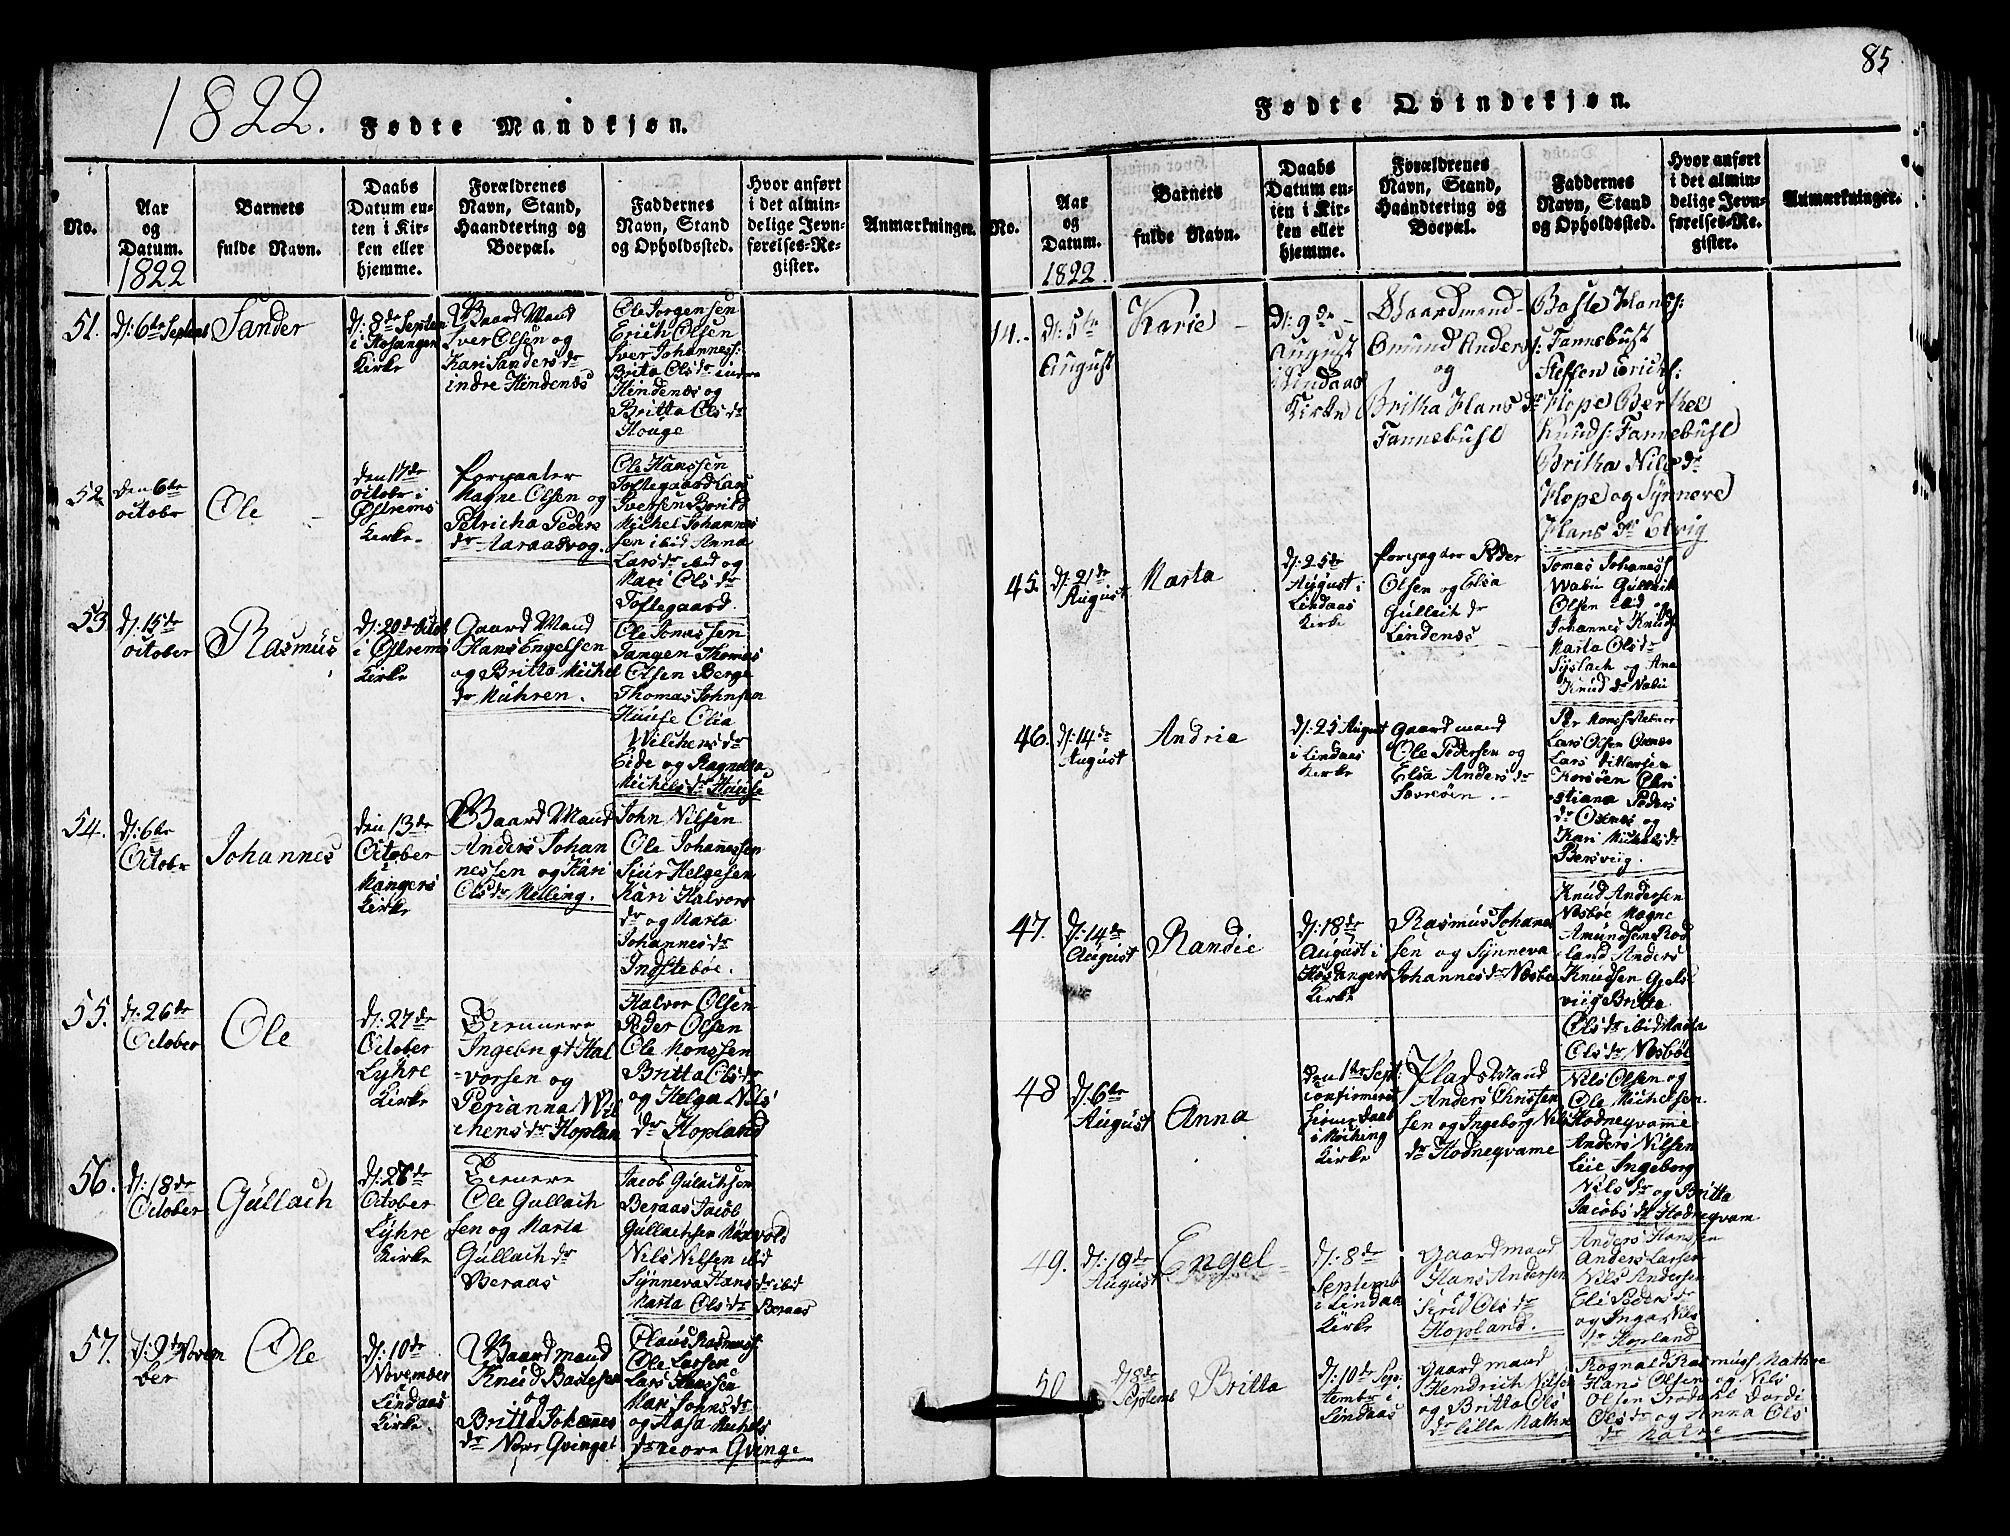 1822.
Fødte Mandkjøn.
No.
Aar
og
Datum.
1822
Barnets
fulde Navn.
Daabs
Datum en-
ten i Kir-
ken eller
hjemme.
Forældrenes
Navn, Stand,
Haandtering og
Boepæl.
Faddernes
Navn, Stand
og Opholdssted.
Hvor anført
i det almin-
delige Jevn-
førelses-Re-
gister.
Anmærkninger.
51.
d: 6te Septem
Sander
d: 8de Septem
i Hosanger
Kirke
Gaard Mand
Iver Olsen og
Kari Sanders dr
indre Hindenæs
Ole Jorgensen
Erich Olsen
Iver Johanness:
Brita Ols dr indre
Hindenæs og
Britta Ols dr
Houge
52
den 6te
octobr
Ole
den 17de
octobr i
Østrems
Kirke
forpagter
Magne Olsen og
Petricha Peders
dr Aaraasvog.
Ole Hanssen
Toftegaard Lars
Iversen
Michel Johannes
sen ibid Anna
Lars dr ibid og
Mari Ols dr
Toftegaard.
53
d: 15de
october
Rasmus
d: 20de Octob
i Østrems
Kirke
Gaard Mand
Hans Engelsen
og Britta Michel
dr Mühren.
Ole Jonassen
Tangen Thomas
Olsen Berge
Thomas Johnsen
Huuse Olia
Wilchens dr
Eide og Ragnilda
Michels dr Huuse
54.
d: 6te
Octobr
Johannes
den 13de
October
i
Mangers
Kirke
Gaard Mand
Anders Johan
nessen og Kari
Ols dr Melling.
John Nilsen
Ole Johannessen
Siur Helgesen
Kari Halvors
dr og Marta
Johannes dr
Indstebøe.
55.
d: 26de
October
Ole
d: 27de
October
Lyhre
Kirke
Tiennere
Ingebrigt Hal
vorsen og
Perianna Wil
chens dr Hoplan
Halvor Olsen
Peder Olsen
Ole Monssen
Britta Ols dr
og Helga Nils
dr Hopland
56.
d: 18de
October
Gullach
d: 28de
October
Lyhre
Kirke
Tienere
Ole Gullach
sen og Marta
Gullach dr
Beraas
Jacob Gulachsen
Beraas Jacob
Gullachsen
Nils Nilsen ibid
Synneva Hans dr ibid
Marta Ols dr Beraas
57.
d: 9de Novem
ber
Ole
d: 10de
November
i
Lindaas
Kirke.
Gaard mand
Knud Bastesen
og
Britta Johannes
dr Nore Qvinge
Claus Rasmuss
Ole Larsen
Lars Hanssen
Mari Johns dr
og Aasa Michels
dr nore Qvinge
85
Fødte Qvindekjøn.
No.
Aar
og
Datum.
1822
Barnets
fulde Navn.
Daabs
Datum en-
ten i Kir-
ken eller
hjemme.
Forældrenes
Navn, Stand,
Haandtering og
Boepæl.
Faddernes
Navn, Stand
og Opholdssted.
Hvor anført
i det almin-
delige Jevn-
førelses-Re-
gister.
Anmærkninger.
d: 5te
August
Karie
d: 9de
August
i Lindaas
Kirke
Gaardmand
Omund Anders:
og
Britha Hans dr
Fannebust
Baste Hans:
Fannebust
Steffen Erichs:
Hope Berthel
Knuds: Fannebust
Britha Nils dr
Hope og Synnøve
Hans dr Elvig
45.
d: 21de
August
Marta
d: 25de
August i
Lindaas
Kirke
forpagter Peder
Olsen og Elsa
Gullach dr
Lindenæs
Tomas Johaness
Wabø Gullach
Olsen ibid og
Johannes Knuds
Marta Ols dr
Syslach og Ana
Knud dr
46.
d: 14de
August
Andria
d: 25 August
i Lindaas
Kirke
gaard mand
Ole Pedersen og
Elsa Anders dr
Sævrøen.
Lars Olsen Oxnæs
Lars
Korsøen Chri
stiana Peders
dr Oxnæs og
Kari Michels dr
Bersvig.
47.
d: 14de
August
Randie
d: 18de
August i
Hosangers
Kirke
Rasmus Johane
sen og Synneva
Johannes dr Nesbøe
Knud Andersen
Nesbøe Magne
Amundsen Rod
land Anders
Knudsen Gjels
viig Britta
Ols dr ibid Marta
Ols dr Nesbøe
48
d: 6te
August
Anna
den 1ste Sept:
confirmeret
hjemme Daab
i Møching
Kirke
Plads mand
Anders Christen
sen og Ingeborg Nils
dr Hodneqvame
Nils Olsen og
Ole Michelsen
Hodneqvamme
Anders Nilsen
Lüe Ingeborg
Nils dr og Britta
Jacobs dr Hodneqvam
49.
d: 19de
August
Engel
d: 8de
Septemb
i Lindaas
Kirke
Gaardmand
Hans Andersen
Siril Ols dr
Hopland.
Anders Hanssen
Anders Larsen
Nils Andersen
Eli Peders dr
og Inga Nils
dr Hopland
50
d: 8de
Septemb
Britta
d: 10de Sep
tembr i
Lindaas
Gaard mand
Hendrich Nilsen
og Britta Ols
dr lille Mathre
Rognald Rasmuss Mathre
Hans Olsen og Nils
Olsen Frodahl Dordi
Ols dr og Anna Ols
dr Matre